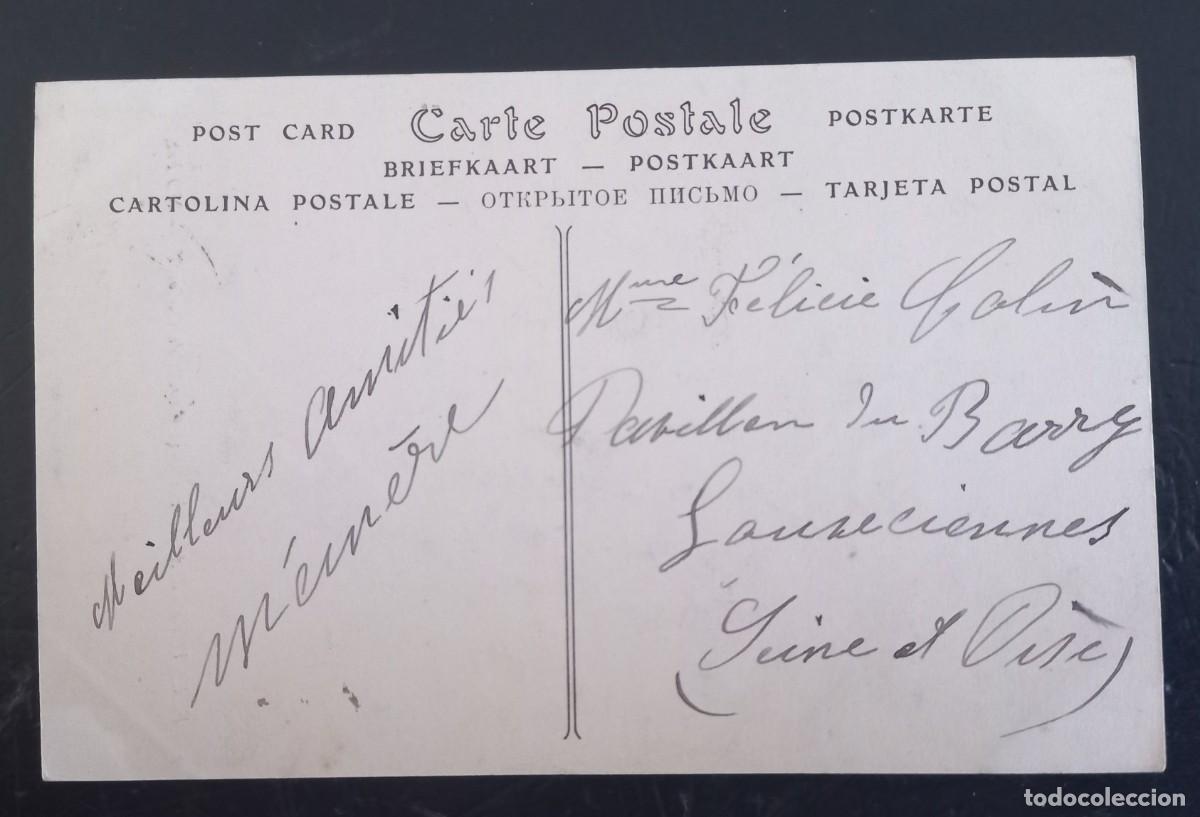 POST CARD Carte Postale POSTKARTE
BRIEFKAART — POSTKAART
CARTOLINA POSTALE — ОТКРЫТОЕ ПИСЬМО — TARJETA POSTAL
Meilleurs Amitiés
Mémère
Mme Félicie Colin
Pavillon du Barry
Louveciennes
(Seine et Oise)
todocoleccion